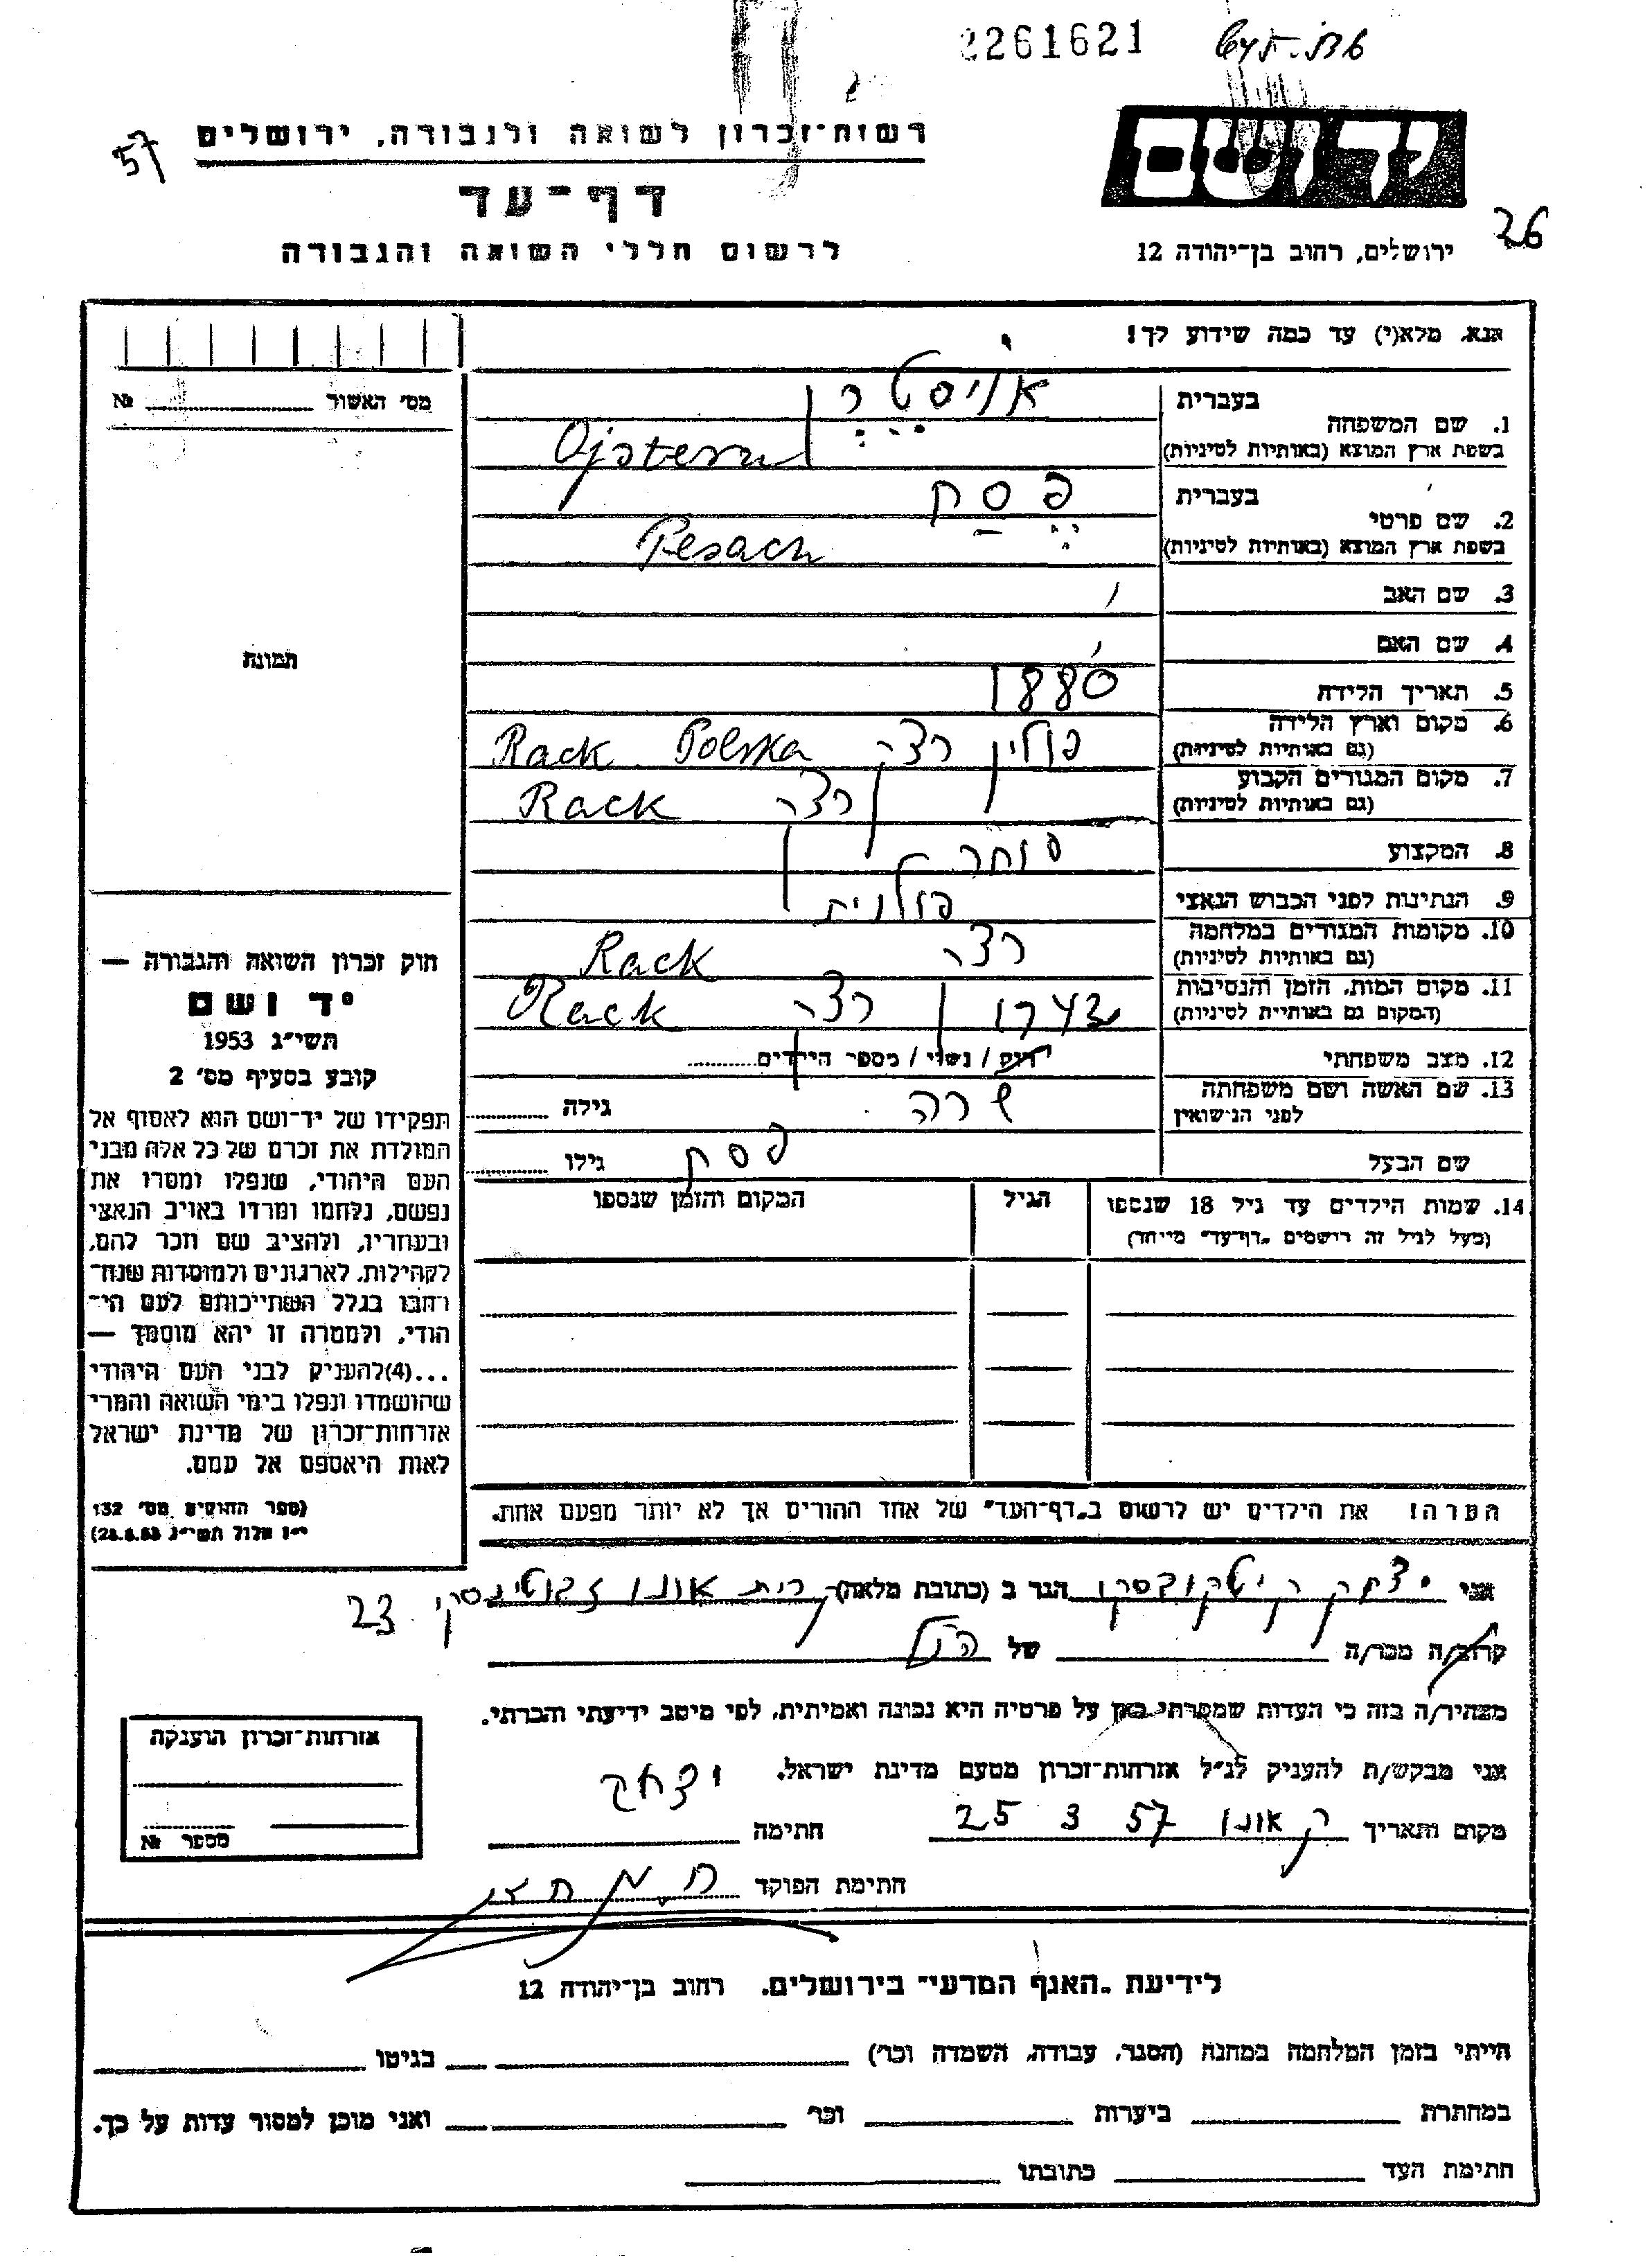 2261621
57
רשות־זכרון לשואה ולגבורה, ירושלים
דף־עד
לרשום חללי השואה והגבורה
יד ושם
ירושלים, רחוב בן־יהודה 12
26
אנא, מלא(י) עד כמה שידוע לך!
מס׳ האשור № 
תמונה
1. שם המשפחה
בעברית אויסטרן
בשפת ארץ המוצא (באותיות לטיניות) Ojstern
2. שם פרטי
בעברית פסח
בשפת ארץ המוצא (באותיות לטיניות) Pesach
3. שם האב
4. שם האם
5. תאריך הלידה 1880
6. מקום וארץ הלידה
(גם באותיות לטיניות) פולין רצק Rack Polska
7. מקום המגורים הקבוע
(גם באותיות לטיניות) רצק Rack
8. המקצוע סוחר
9. הנתינות לפני הכבוש הנאצי פולנית
10. מקומות המגורים במלחמה
(גם באותיות לטיניות) רצק Rack
11. מקום המות, הזמן והנסיבות
(המקום גם באותיות לטיניות) רצק Rack
12. מצב משפחתי רווק / נשוי / מספר הילדים
13. שם האשה ושם משפחתה
לפני הנישואין שרה גילה
שם הבעל פסח גילו
14. שמות הילדים עד גיל 18 שנספו הגיל המקום והזמן שנספו
(מעל לגיל זה רושמים „דף־עד״ מיוחד)
הערה! את הילדים יש לרשום ב„דף־העד״ של אחד ההורים אך לא יותר מפעם אחת.
חוק זכרון השואה והגבורה —
יד ושם
תשי״ג 1953
קובע בסעיף מס׳ 2
תפקידו של יד־ושם הוא לאסוף אל
המולדת את זכרם של כל אלה מבני
העם היהודי, שנפלו ומסרו את
נפשם, נלחמו ומרדו באויב הנאצי
ובעוזריו, ולהציב שם וזכר להם,
לקהילות, לארגונים ולמוסדות שנח־
רחבו בגלל השתייכותם לעם הי־
הודי, ולמטרה זו יהא מוסמך —
...(4)להעניק לבני העם היהודי
שהושמדו ונפלו בימי השואה והמרי
אזרחות־זכרון של מדינת ישראל
לאות היאספם אל עמם.
(ספר החוקים מס׳ 132
י״ז אלול תשי״ג 28.8.53)
אני יצחק הגר ב (כתובת מלאה) קרית אונו ז׳בוטינסקי 23
קרוב/ה מכר/ה של הנ״ל
מצהיר/ה בזה כי העדות שמסרתי כאן על פרטיה היא נכונה ואמיתית, לפי מיטב ידיעתי והכרתי.
אני מבקש/ת להעניק לנ״ל אזרחות־זכרון מטעם מדינת ישראל.
מקום ותאריך ק אונו 25 3 57 חתימה יצחק
חתימת הפוקד
אזרחות־זכרון הוענקה
מספר №
לידיעת „האגף המדעי״ בירושלים, רחוב בן־יהודה 12
הייתי בזמן המלחמה במחנה (הסגר, עבודה, השמדה וכו׳) בגיטו
במחתרת ביערות וכו׳ ואני מוכן למסור עדות על כך.
חתימת העד כתובתו